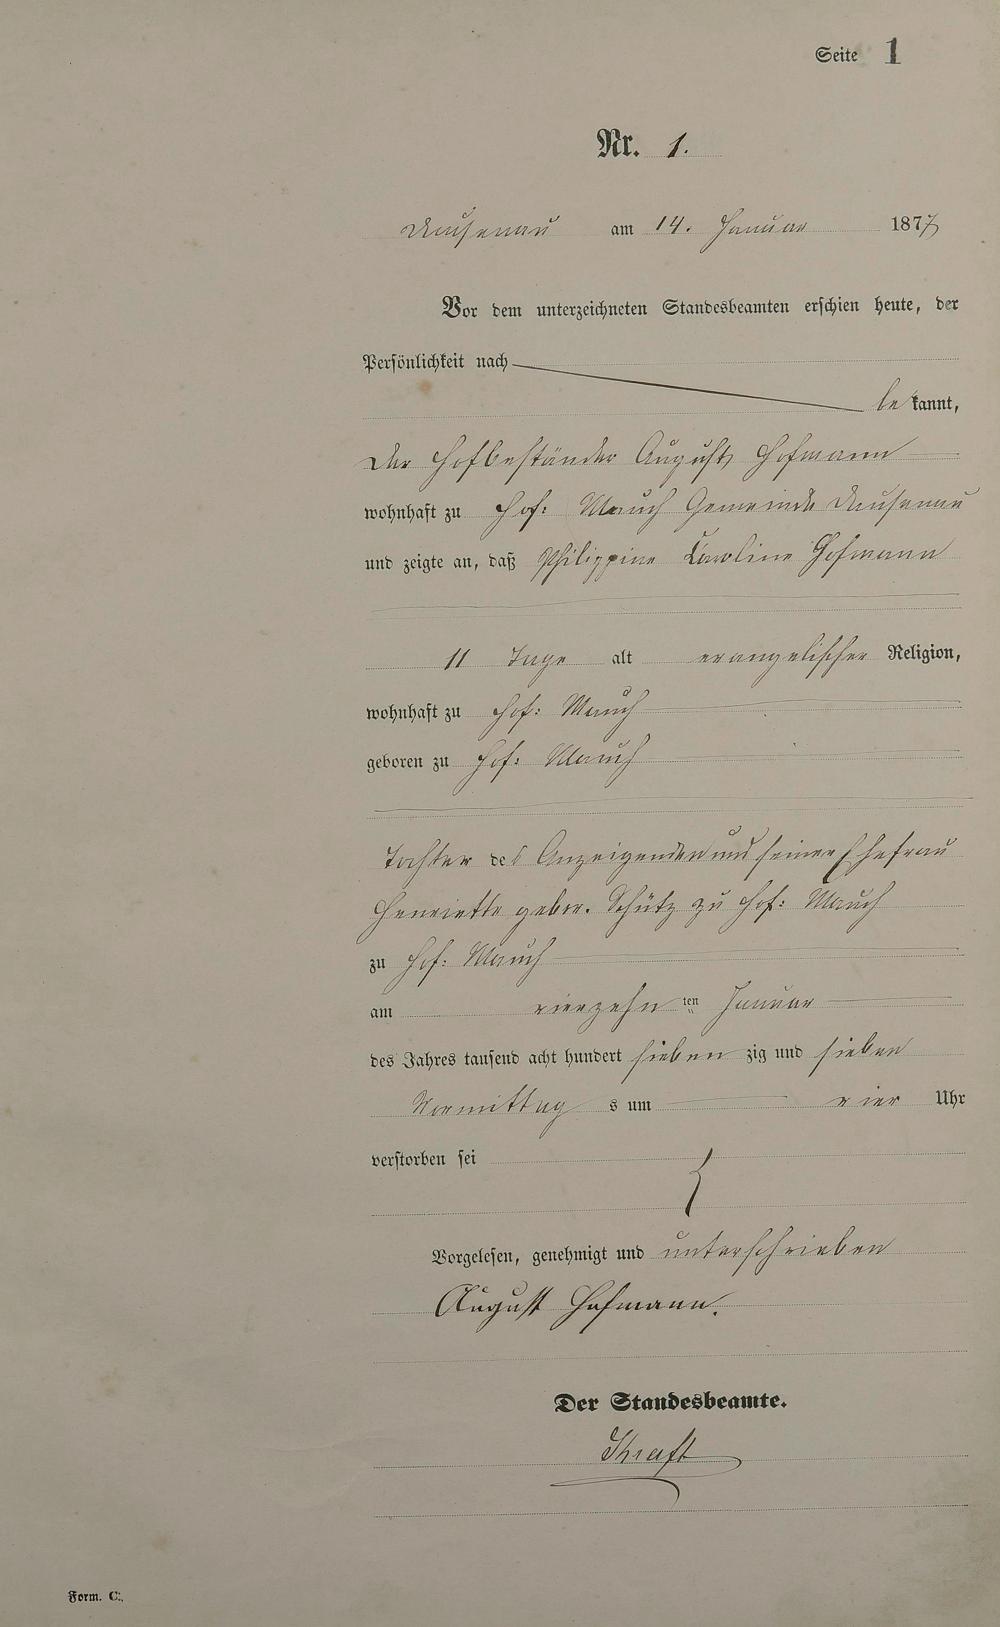 Seite 1
Nr. 1.
Dausenau am 14. Januar 1877
Vor dem unterzeichneten Standesbeamten erschien heute, der
Persönlichkeit nach
bekannt,
der Hofbeständer August Hofmann
wohnhaft zu Hof: Mauch Gemeinde Dausenau
und zeigte an, daß Philippine Karoline Hofmann
11 Tage alt evangelischer Religion,
wohnhaft zu Hof: Mauch
geboren zu Hof: Mauch
Tochter des Anzeigenden und seiner Ehefrau
Henriette gebor. Schütz zu Hof: Mauch
zu Hof: Mauch
am vierzehn ten Januar
des Jahres tausend acht hundert sieben zig und sieben
Vormittag s um vier Uhr
verstorben sei
Vorgelesen, genehmigt und unterschrieben
August Hofmann.
Der Standesbeamte.
Kraft
Form. C.